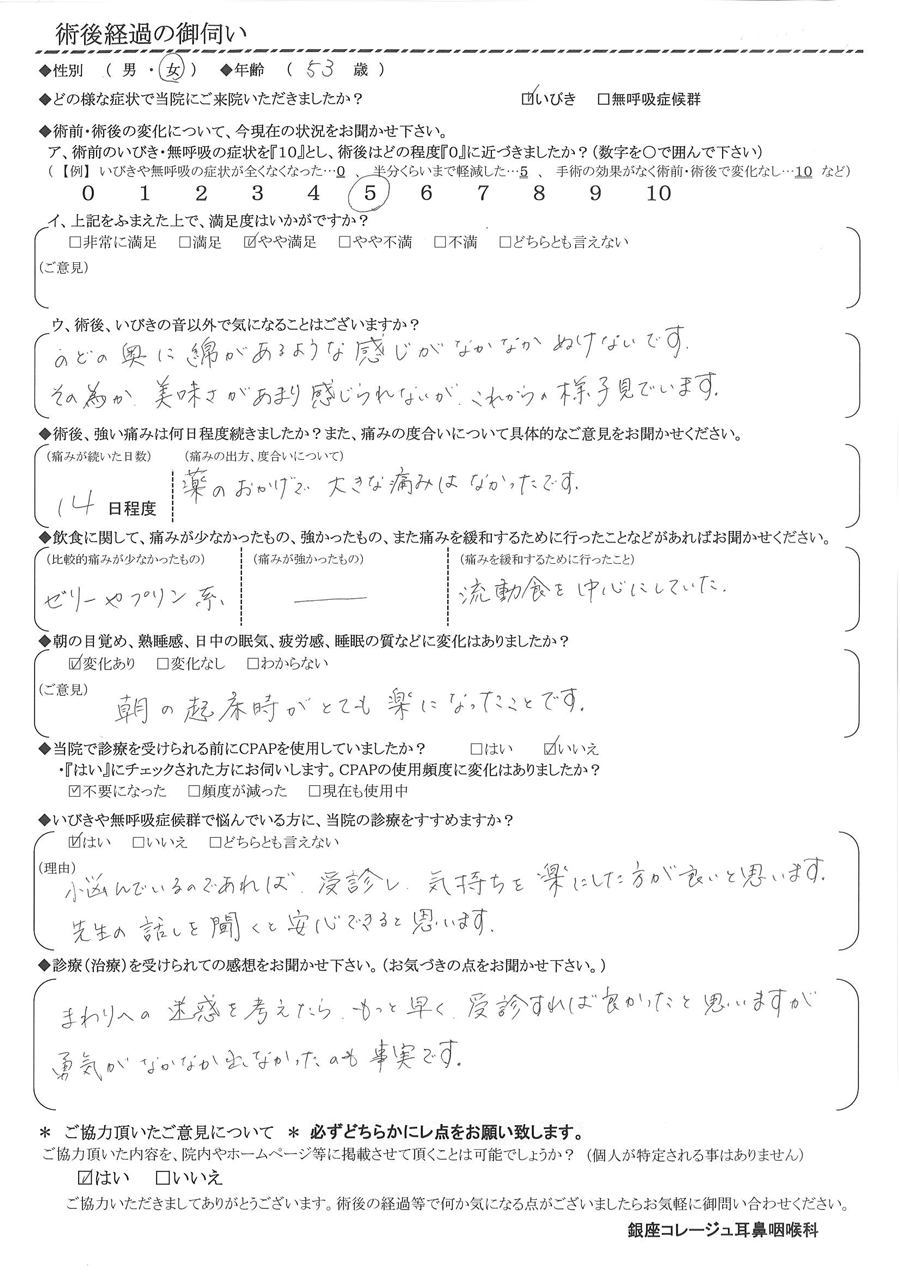 術後経過の御伺い
◆性別 ( 男 ・ 女 ) ◆年齢 ( 53 歳 )
◆どの様な症状で当院にご来院いただきましたか? ☑いびき □無呼吸症候群
◆術前・術後の変化について、今現在の状況をお聞かせ下さい。
ア、術前のいびき・無呼吸の症状を『10』とし、術後はどの程度『0』に近づきましたか?(数字を〇で囲んで下さい)
(【例】いびきや無呼吸の症状が全くなくなった…0 、 半分くらいまで軽減した…5 、 手術の効果がなく術前・術後で変化なし…10 など)
0 1 2 3 4 5 6 7 8 9 10
イ、上記をふまえた上で、満足度はいかがですか?
□非常に満足 □満足 ☑やや満足 □やや不満 □不満 □どちらとも言えない
(ご意見)
ウ、術後、いびきの音以外で気になることはございますか?
のどの奥に綿があるような感じがなかなかぬけないです。
その為か、美味さがあまり感じられないが、これからの様子見でいます。
◆術後、強い痛みは何日程度続きましたか?また、痛みの度合いについて具体的なご意見をお聞かせください。
(痛みが続いた日数) (痛みの出方、度合いについて)
薬のおかげで大きな痛みはなかったです。
14 日程度
◆飲食に関して、痛みが少なかったもの、強かったもの、また痛みを緩和するために行ったことなどがあればお聞かせください。
(比較的痛みが少なかったもの) (痛みが強かったもの) (痛みを緩和するために行ったこと)
ゼリーやプリン系、 ― 流動食を中心にしていた。
◆朝の目覚め、熟睡感、日中の眠気、疲労感、睡眠の質などに変化はありましたか?
☑変化あり □変化なし □わからない
(ご意見)
朝の起床時がとても楽になったことです。
◆当院で診療を受けられる前にCPAPを使用していましたか? □はい ☑いいえ
・『はい』にチェックされた方にお伺いします。CPAPの使用頻度に変化はありましたか?
☑不要になった □頻度が減った □現在も使用中
◆いびきや無呼吸症候群で悩んでいる方に、当院の診療をすすめますか?
☑はい □いいえ □どちらとも言えない
(理由)
悩んでいるのであれば、受診し、気持ちを楽にした方が良いと思います。
先生の話しを聞くと安心できると思います。
◆診療(治療)を受けられての感想をお聞かせ下さい。(お気づきの点をお聞かせ下さい。)
まわりへの迷惑を考えたら、もっと早く、受診すれば良かったと思いますが
勇気がなかなか出なかったのも事実です。
＊ ご協力頂いたご意見について ＊ 必ずどちらかにレ点をお願い致します。
ご協力頂いた内容を、院内やホームページ等に掲載させて頂くことは可能でしょうか? (個人が特定される事はありません)
☑はい □いいえ
ご協力いただきましてありがとうございます。術後の経過等で何か気になる点がございましたらお気軽に御問い合わせください。
銀座コレージュ耳鼻咽喉科